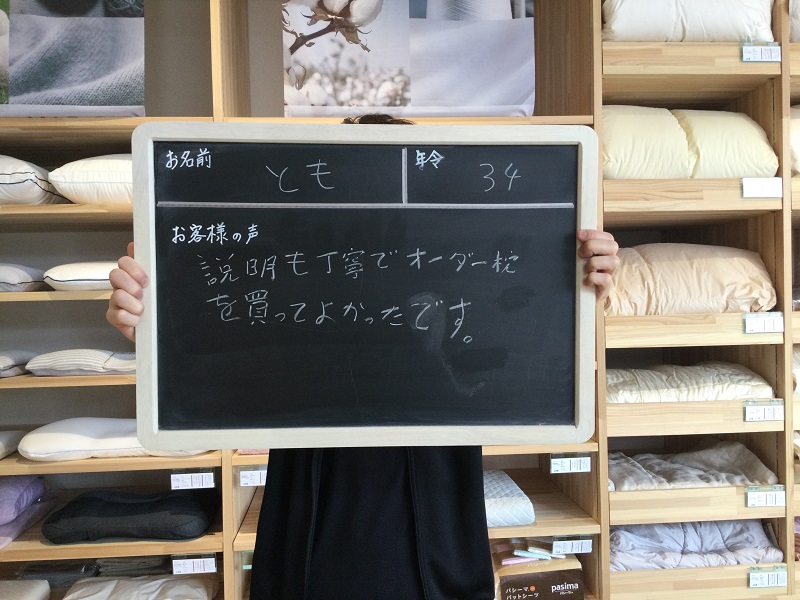 お名前 とも 年令 34
お客様の声
説明も丁寧でオーダー枕
を買ってよかったです。
パシーマ
パットシーツ
pasima